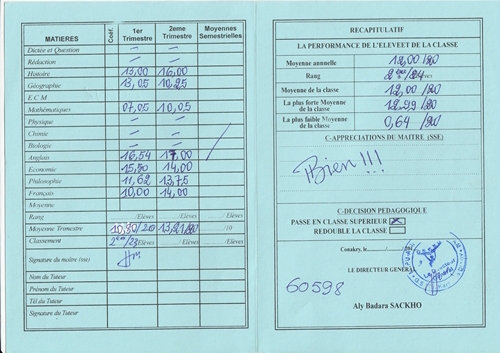 MATIERES Coéf. 1er Trimestre 2eme Trimestre Moyennes Semestrielles
Dictée et Question
Rédaction
Histoire 13,00 16,00
Géographie 13,05 10,25
E C M
Mathématiques 07,05 10,05
Physique
Chimie
Biologie
Anglais 16,54 17,00
Economie 15,50 14,00
Philosophie 11,62 13,75
Français 10,00 14,00
Moyenne
Rang /Elèves /Elèves /Elèves
Moyenne Trimestre 10,30/20 13,21/20 /10
Classement /Elèves /Elèves
Signature du maître (sse)
Nom du Tuteur
Prénom du Tuteur
Tél du Tuteur
Signature du Tuteur
RECAPITULATIF
LA PERFORMANCE DE L'ELEVEET DE LA CLASSE
Moyenne annuelle 12,00/20
Rang
Moyenne de la classe 12,00/20
La plus forte Moyenne de la classe 12.99/20
La plus faible Moyenne de la classe 0,64/20
C-APPRECIATIONS DU MAITRE (SSE)
Bien !!!
C-DECISION PEDAGOGIQUE
PASSE EN CLASSE SUPERIEUR
REDOUBLE LA CLASSE
Conakry, le
LE DIRECTEUR GENERAL
60598
Aly Badara SACKHO